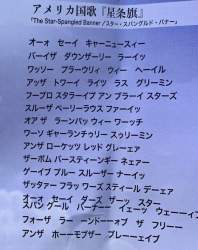 アメリカ国歌『星条旗』
『The Star-Spangled Banner /スター・スパングルド・バナー』
オーォ セーイ キャーニュースィー
バーイザ ダウンザーリー ラーイッ
ワッソー プラーウリィ ウィー ヘーイル
アッザ トワーイ ライツ ラス グリーミン
フーブロ スタライプ アン ブライー スターズ
スルーザ ペーリーラウス ファーイッ
オア ザ ラーンパッ ウィー ワーッチ
ワーソ ギャーランチゥリー スゥリーミン
アンザ ローケッツ レッド グレーェア
ザーボム バースティーンギー ネェァー
ゲーイブ プルー スルーザー ナーイッ
ザッタァー フラッ ワーズ スティール デーェア
オーォ セーイ ダーズ ザーッ スター
スパングール バーナー イェーッ ウェーーイ
フォーザ ラー ーンドーーオブ ザ フリー
アンザ ホーーモブザー ブレーーェイブ